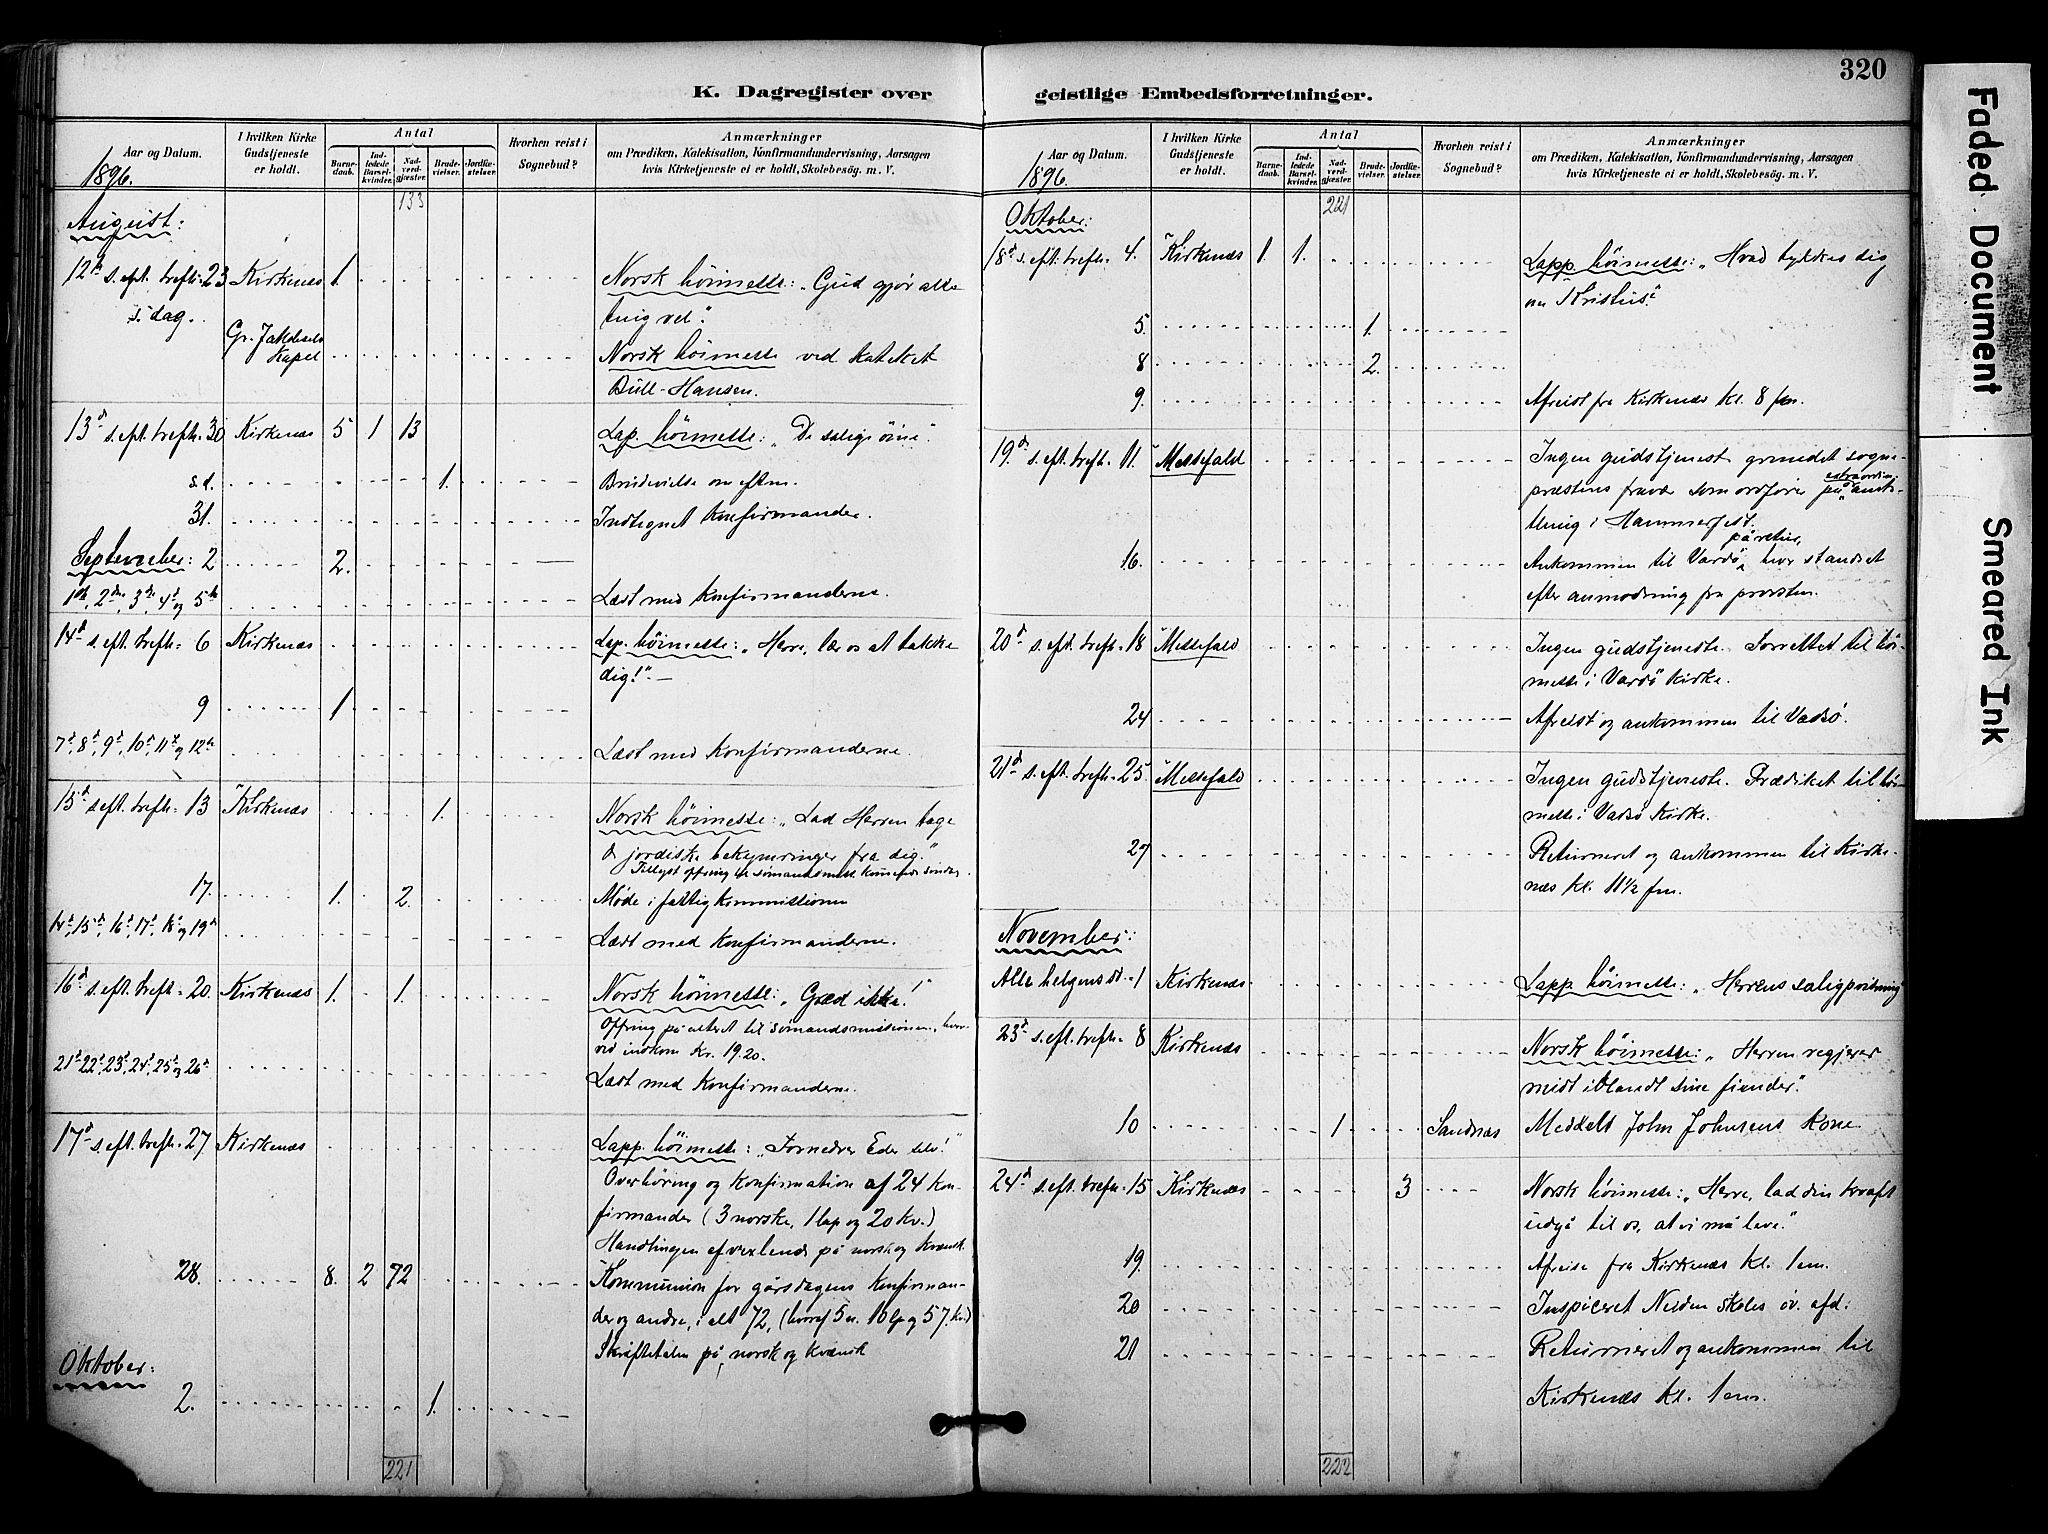 320
K. Dagregister over geistlige Embedsforretninger.
Aar og Datum.
1896.
I hvilken Kirke Gudstjeneste er holdt.
Antal
Barnedaab.
Indledede Barselkvinder.
Nadverdgjæster.
Brudevielser.
Jordfæstelser.
Hvorhen reist i Sognebud?
Anmærkninger
om Prædiken, Katekisation, Konfirmandundervisning, Aarsagen
hvis Kirketjeneste ei er holdt, Skolebesøg. m. V.
133
August:
12te s. eft. trefh. 23 Kirkenæs 1. Norsk høimesse: "Gud gjør alle
s. dag. ting vel".
Gr. Jakobselv Kapel Norsk høimesse ved kateket
Bull-Hansen.
13d s. eft. trefh. 30 Kirkenæs 5 1 13 Lap. høimesse: "De salige øine".
s.d. 1. Brudevielse om eftm.
31. Indtegnet Konfirmander.
September: 2 2.
1ste, 2den, 3die, 4d og 5te Læst med Konfirmanderne.
14d s. eft. trefh. 6 Kirkenæs Lap. høimesse: "Herre, lær os at takke
dig!" —
9 1
7d, 8d, 9d, 10d, 11te og 12te Læst med Konfirmanderne.
15d s. eft. trefh. 13 Kirkenæs 1. Norsk høimesse: "Lad Herren tage
de jordiske bekymringer fra dig."
Tillyst offring til sømandsmiss. søndag.
17. 1. 2. Møde i fattigkommissionen
14d, 15d, 16d, 17d, 18d og 19d Læst med Konfirmanderne.
16d s. eft. trefh. 20. Kirkenæs 1. 1. Norsk høimesse: "Græd ikke!"
Offring på alteret til sømandsmissionen, hvor-
ved indkom Kr. 19.20.
21d 22d, 23d, 24d, 25d og 26d Læst med Konfirmanderne.
17d s. eft. trefh. 27 Kirkenæs Lapp. høimesse: "Fornedrer Eder selv!"
Overhøring og Konfirmation af 24 kon-
firmander (3 norske, 1 lap og 20 kv.)
Handlingen afvexlende på norsk og kvænsk.
28. 8. 2 72 Kommunion for gårsdagens Konfirman-
der og andre, i alt 72, (hvoraf 5 n. 10 lp og 57 kv.)
Skriftetalen på norsk og kvænsk
Oktober:
2. 1.
221
Aar og Datum.
1896.
I hvilken Kirke Gudstjeneste er holdt.
Antal
Barnedaab.
Indledede Barselkvinder.
Nadverdgjæster.
Brudevielser.
Jordfæstelser.
Hvorhen reist i Sognebud?
Anmærkninger
om Prædiken, Katekisation, Konfirmandundervisning, Aarsagen
hvis Kirketjeneste ei er holdt, Skolebesøg. m. V.
221
Oktober:
18d s. eft. trefh. 4. Kirkenæs 1. 1. Lapp. høimesse: "Hvad tykkes dig
om Kristus?"
5. 1.
8 2.
9. Afreist fra Kirkenæs kl. 8 fm.
19d s. eft. trefh. 11. Messefald Ingen gudstjenest grundet sogne-
præstens fravær som ordfører på extraordin. amts-
thing i Hammerfest.
16. Ankommen til Vardø på retur, hvor standset
efter anmodning fra provsten.
20d s. eft. trefh. 18 Messefald Ingen gudstjeneste. Forrettet til høi-
messe i Vardø kirke.
24 Afreist og ankommen til Vadsø.
21d s. eft. trefh. 25 Messefald Ingen gudstjeneste. Prædiket til høi-
messe i Vadsø Kirke.
27 Returneret og ankommen til Kirke-
næs kl. 11 1/2 fm.
November:
Alle helgens d. 1 Kirkenæs Lapp. høimesse: "Herrens saligprisning"
23d s. eft. trefh. 8 Kirkenæs Norsk høimesse: "Herren regjerer
midt iblandt sine fiender."
10 1 Sandnæs Meddelt John Johnsens Kone
24d s. eft. trefh. 15 Kirkenæs 3 Norsk høimesse: "Herre, lad din kraft
udgå til os, at vi må leve."
19. Afreise fra Kirkenæs kl. 1 em.
20 Inspiceret Neiden skoles øv. afd.
21 Returneret og ankommen til
Kirkenæs kl. 1 em.
222
Faded Document
Smeared Ink